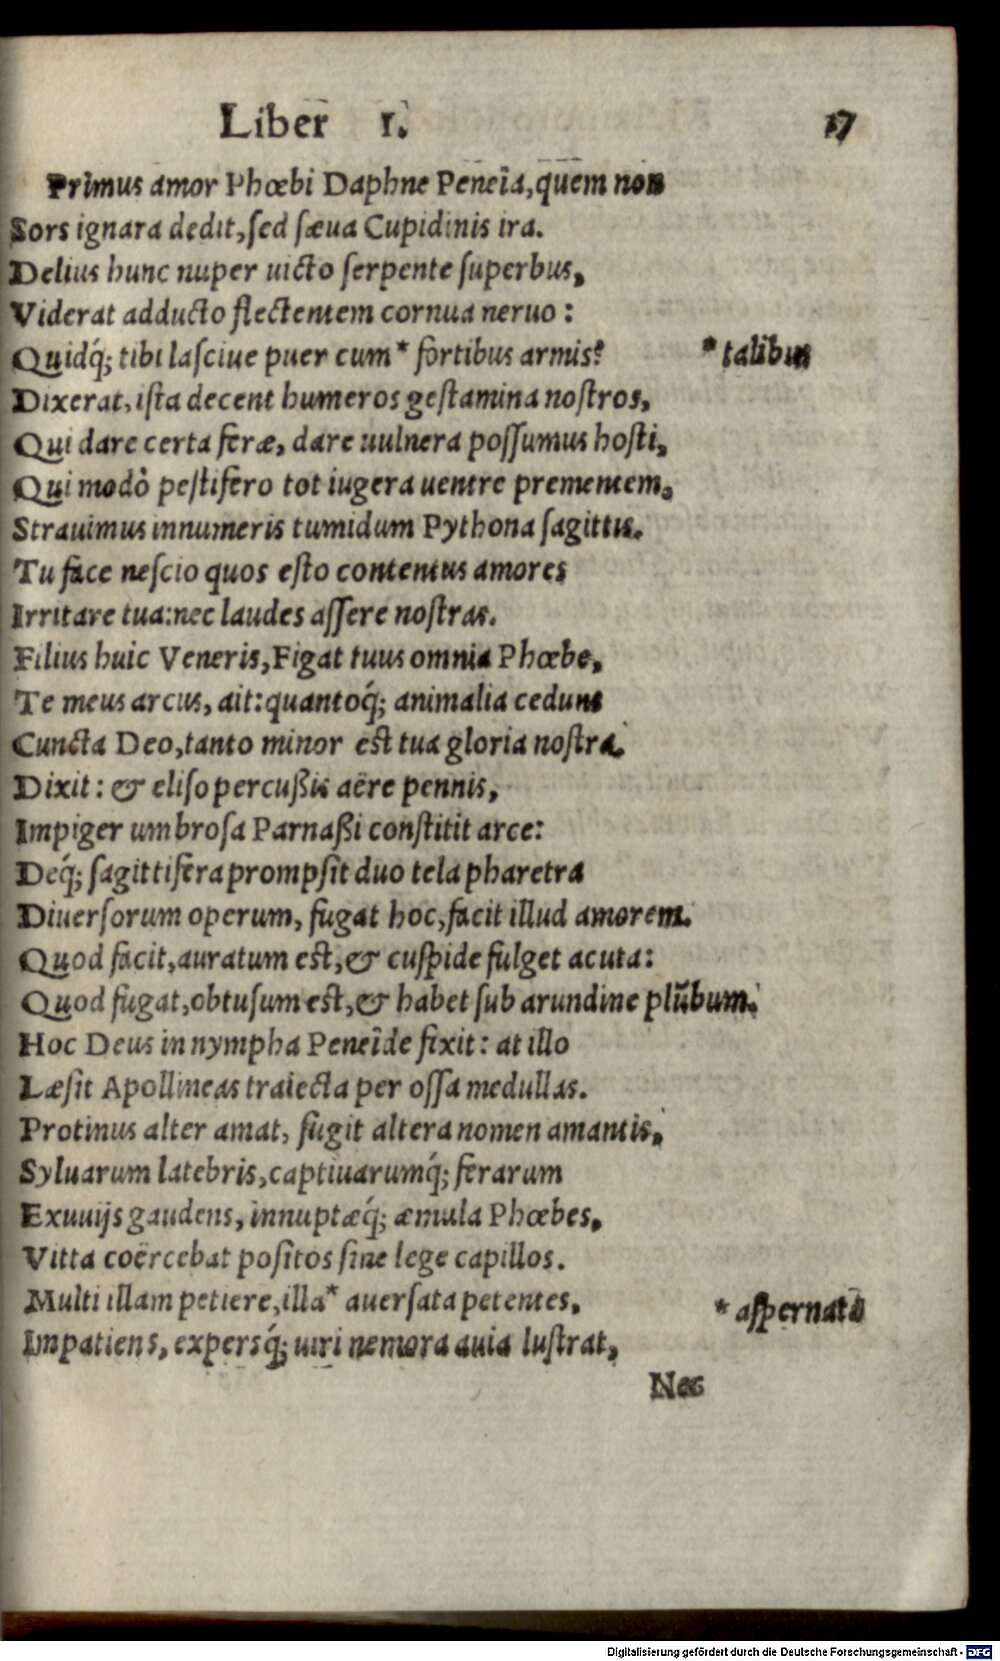 Liber 1. 17
Primus amor Phœbi Daphne Peneîa, quem non
Sors ignara dedit, ſed ſæua Cupidinis ira.
Delius hunc nuper uicto ſerpente ſuperbus,
Viderat adducto flectentem cornua neruo:
Quidq́; tibi laſciue puer cum* fortibus armis? *talibus
Dixerat, iſta decent humeros geſtamina noſtros,
Qui dare certa feræ, dare uulnera poſſumus hoſti,
Qui modò peſtifero tot iugera uentre prementem,
Strauimus innumeris tumidum Pythona ſagittis.
Tu face neſcio quos eſto contentus amores
Irritare tua: nec laudes aſſere noſtras.
Filius huic Veneris, Figat tuus omnia Phœbe,
Te meus arcus, ait: quantoq́; animalia cedunt
Cuncta Deo, tanto minor eſt tua gloria noſtra.
Dixit: & eliſo percußis aëre pennis,
Impiger umbroſa Parnaßi conſtitit arce:
Deq́; ſagittifera prompſit duo tela pharetra
Diuerſorum operum, fugat hoc, facit illud amorem.
Quod facit, auratum eſt, & cuſpide fulget acuta:
Quod fugat, obtuſum eſt, & habet ſub arundine plũbum.
Hoc Deus in nympha Peneîde fixit: at illo
Læſit Apollineas traiecta per oſſa medullas.
Protinus alter amat, fugit altera nomen amantis,
Syluarum latebris, captiuarumq́; ferarum
Exuuijs gaudens, innuptæq́; æmula Phœbes,
Vitta coërcebat poſitos ſine lege capillos.
Multi illam petiere, illa* auerſata petentes, *aſpernata
Impatiens, expersq́; uiri nemora auia luſtrat,
Nec
Digitalisierung gefördert durch die Deutsche Forschungsgemeinschaft - DFG